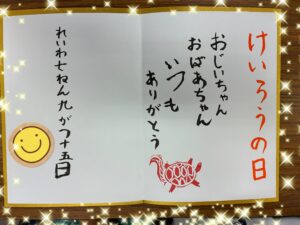 けいろうの日
おじいちゃん
おばあちゃん
いつも
ありがとう
れいわ七ねん九がつ十五日